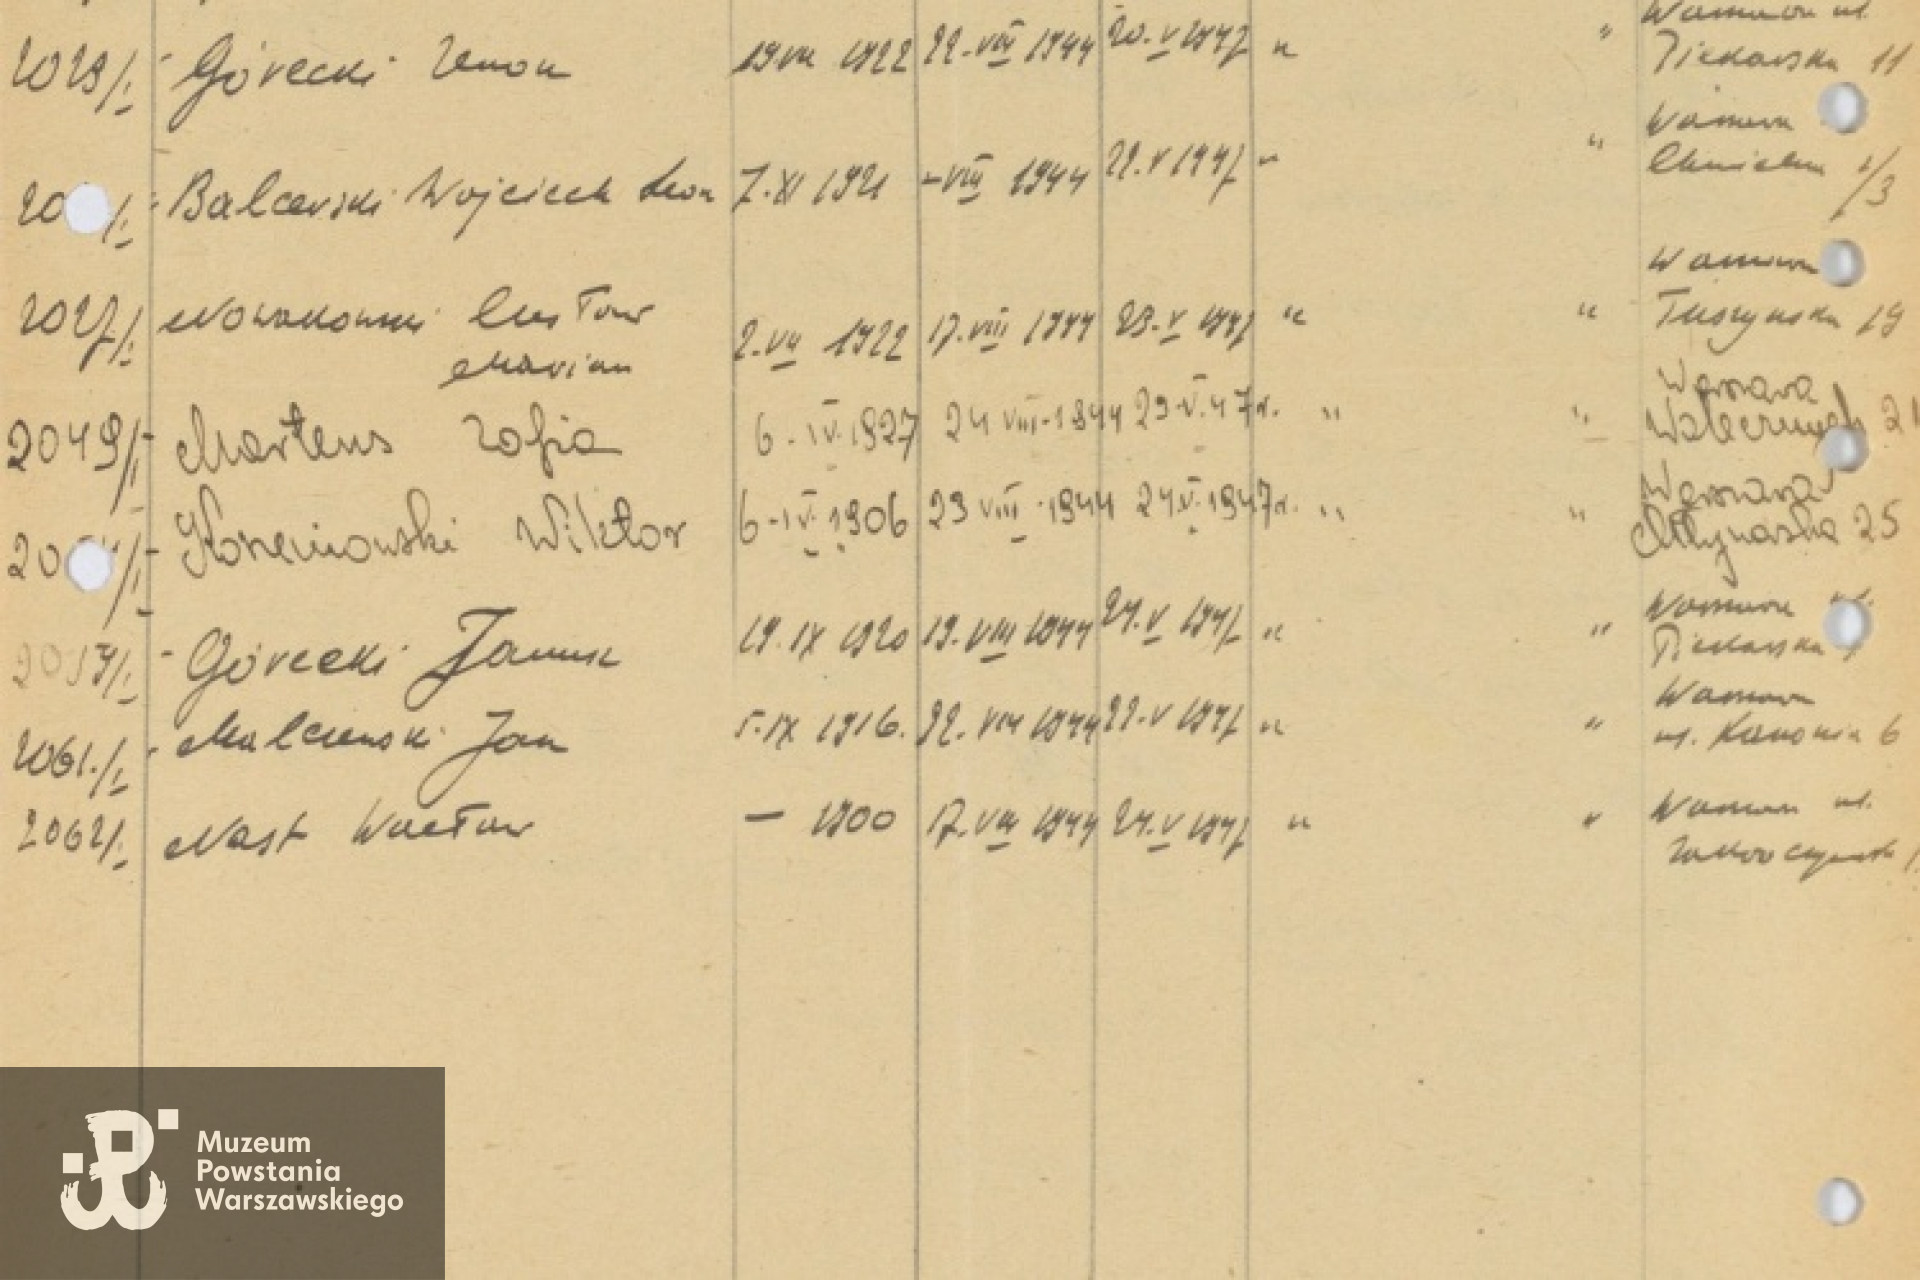 2023/I - Górecki Zenon 19 VII 1922 22. VIII 1944 20. V 1947 " " Warszawa ul. Piekarska 11
/I - Balcerski Wojciech Leon 7. XI 1921 - VIII 1944 22. V 1947 " " Warszawa Chmielna
2027/I Nowakowski Gustaw 2. VII 1922 17. VIII 1944 23. V 1947 " " Warszawa 19
Marian
2049/I - Martens Zofia 6 - IV 1927 24 VIII - 1944 29. V. 47 r. " " Warszawa Walecznych
/I - Korzeniowski Wiktor 6 - IV 1906 23 VIII - 1944 24 V. 1947 r. " " Warszawa Młynarska 25
/I - Górecki Janusz 19. IX 1920 19. VIII 1944 24. V 1947 " " Warszawa ul. Piekarska
2061/I - Malczewski Jan 5. IX 1916. 22. VIII 1944 22. V 1947 " " Warszawa ul. Kanonia 6
2062/I Nast Wacław — 1900 17. VIII 1944 24. V 1947 " " Warszawa ul. Zakroczymska
Muzeum
Powstania
Warszawskiego